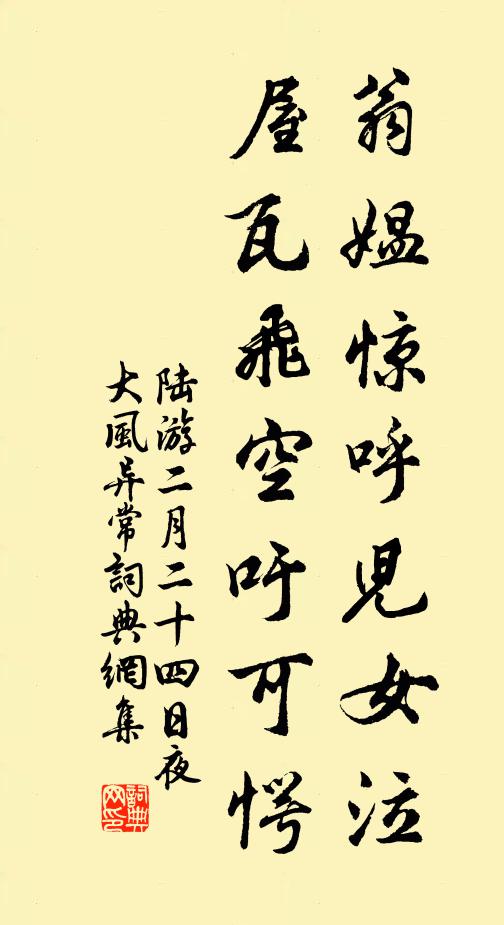 翁媪惊呼児女泣
屋瓦飛空吁可愕
陆游二月二十四日夜
大風异常詞典網集
詞典网印